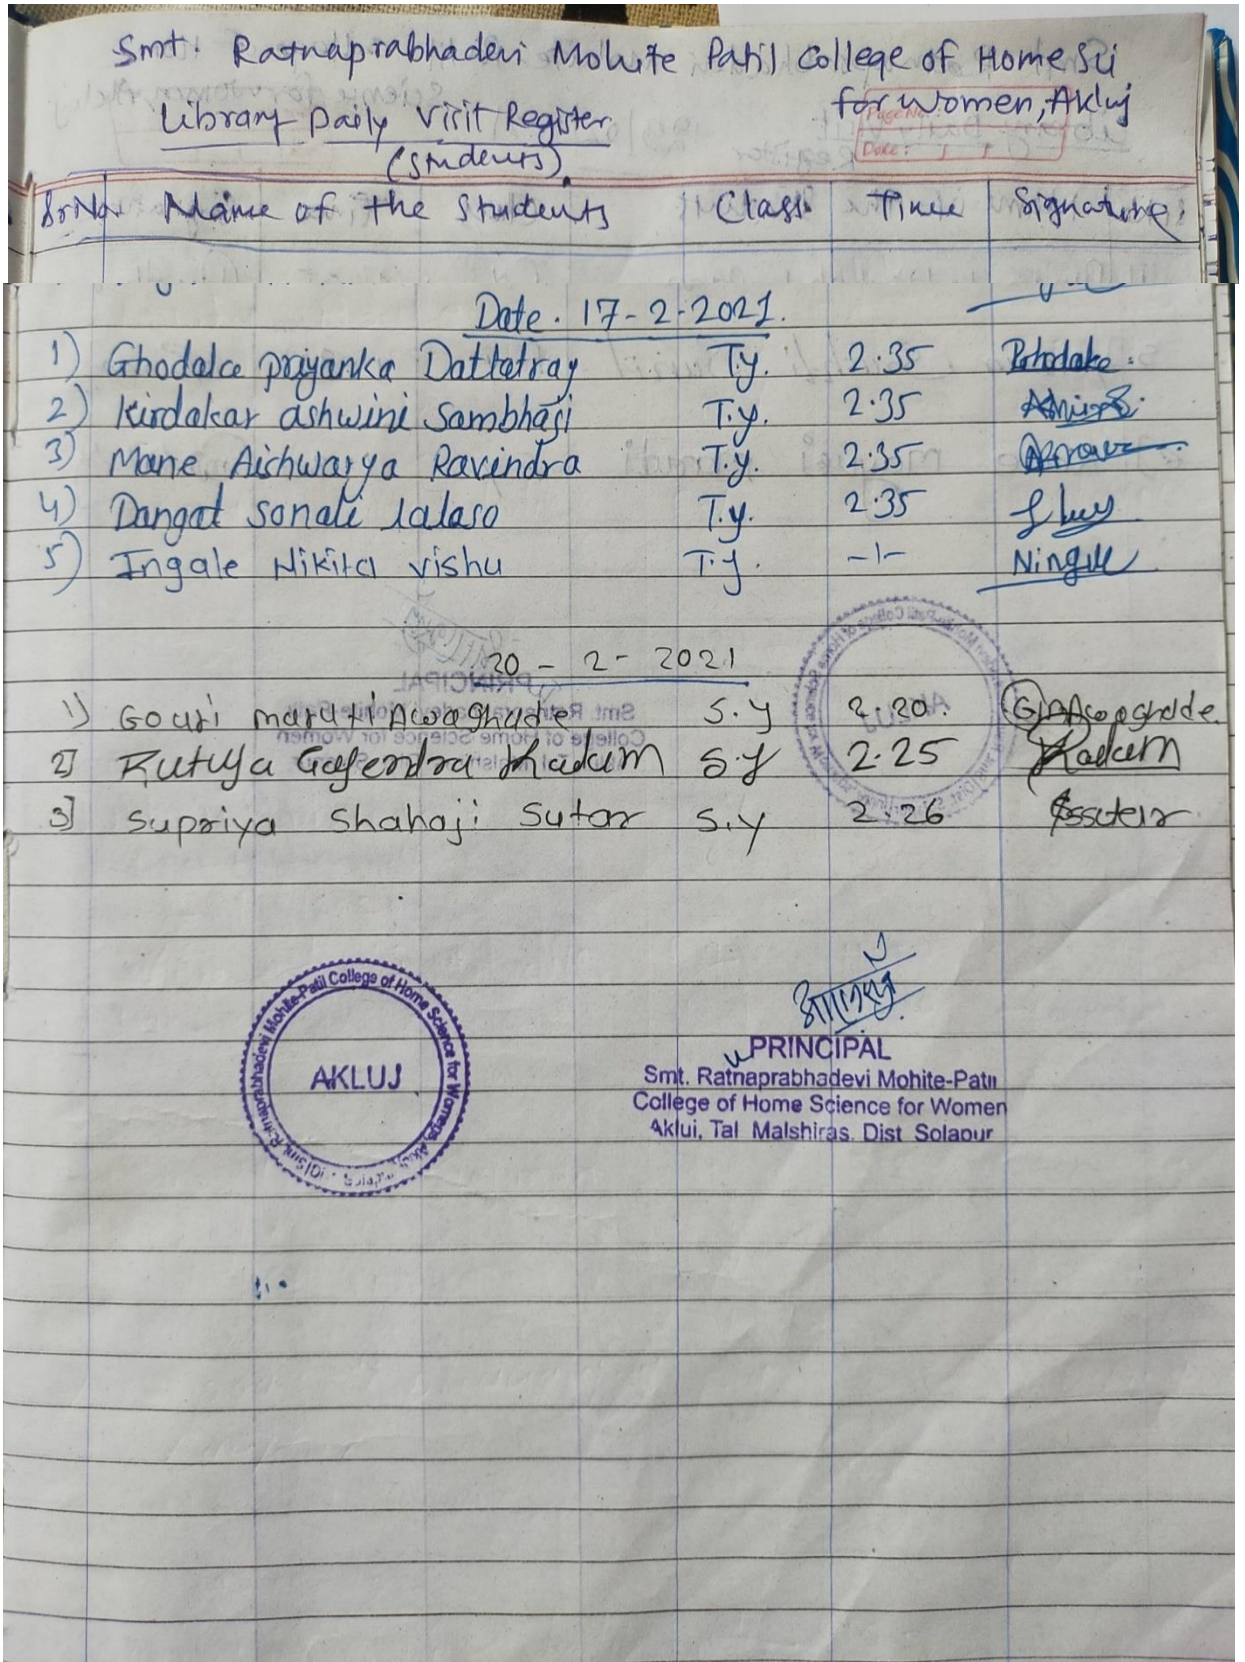 Smt. Ratnaprabhadevi Mohite Patil College of Home Sci
for Women, Akluj
Library Daily Visit Register
(Students).
Page No.
Date: / /
Sr.No. Name of the Students Class. Time Signature.
Date. 17-2-2021.
1) Ghodake priyanka Dattatray T.y. 2.35 Pghodake.
2) Kirdakar ashwini Sambhaji T.y. 2.35
3) Mane Aishwarya Ravindra T.y. 2.35
4) Dangat sonali lalaso T.y. 2.35
5) Ingale Nikita vishu T.y. -1- Ningale
20 - 2 - 2021
1) Gouri maruti Awaghade S.y 2.20. GMAwaghade.
2] Rutuja Gajendra Kadam S.y 2.25 Kadam
3] Supriya Shahaji Sutar S.y 2.26 Sssutar
Smt. Ratnaprabhadevi Mohite-Patil College of Home Science for Women, Akluj
AKLUJ
PRINCIPAL
Smt. Ratnaprabhadevi Mohite-Patil
College of Home Science for Women
Akluj, Tal Malshiras. Dist Solapur